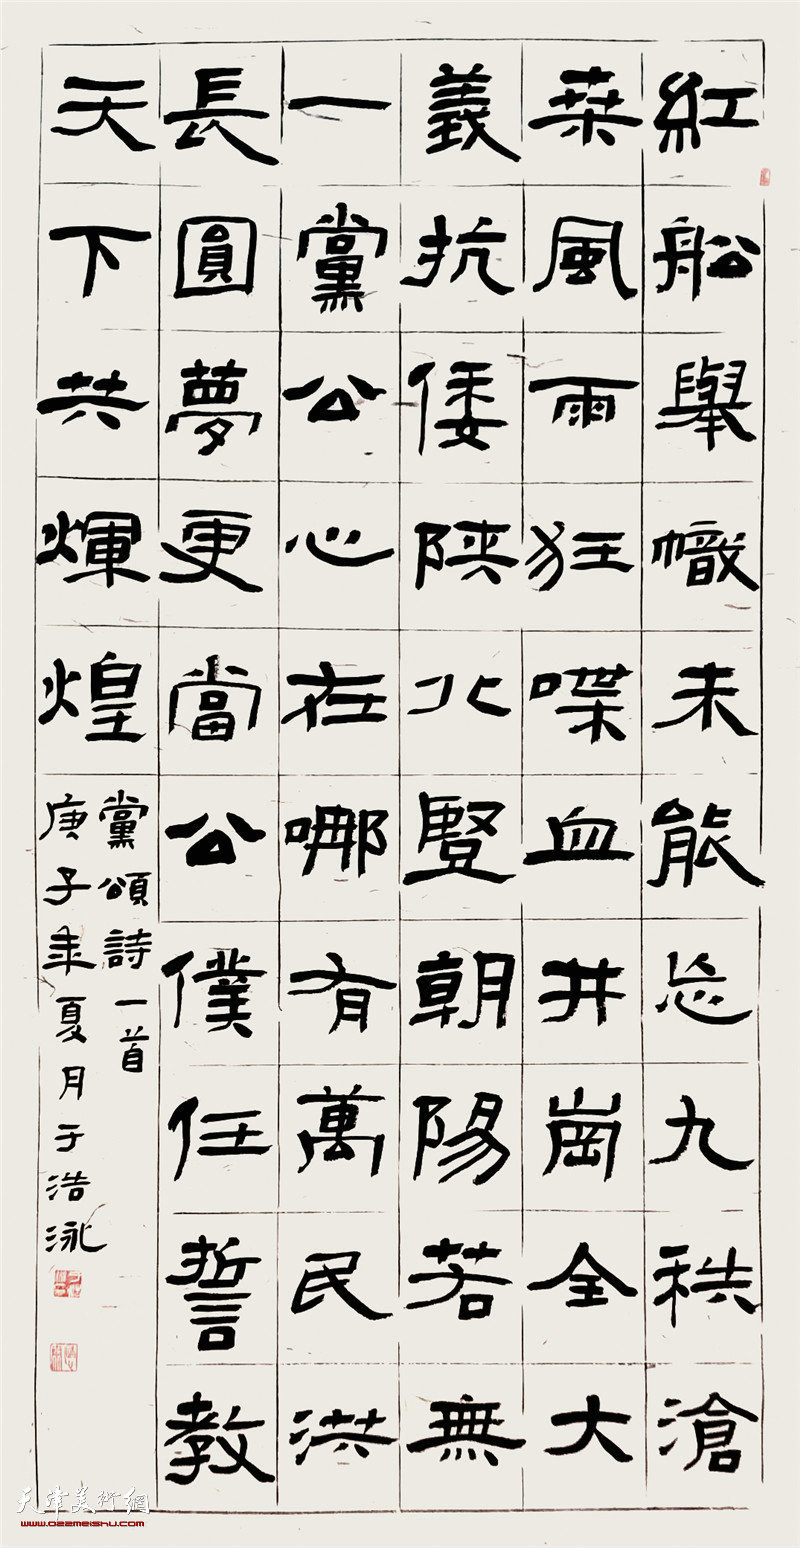 紅船舉幟未能忘九秩滄
桑風雨狂喋血井崗全大
義抗倭陝北豎朝陽若無
一黨公心在哪有萬民洪
長圓夢更當公僕任誓教
天下共輝煌
黨頌詩一首
庚子年夏月于浩泳
天津美術網
www.022meishu.com